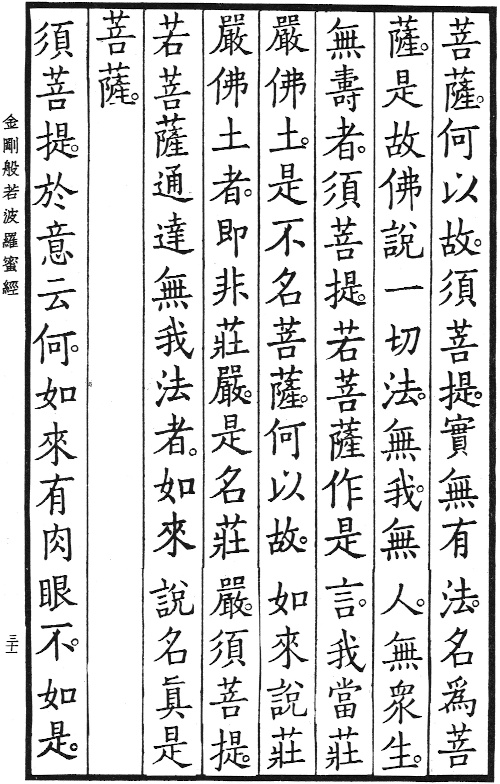 菩薩。何以故。須菩提。實無有法。名為菩
薩。是故佛說一切法。無我。無人。無眾生。
無壽者。須菩提。若菩薩作是言。我當莊
嚴佛土。是不名菩薩。何以故。如來說莊
嚴佛土者。即非莊嚴。是名莊嚴。須菩提。
若菩薩通達無我法者。如來說名真是
菩薩。
須菩提。於意云何。如來有肉眼不。如是。
金剛般若波羅蜜經